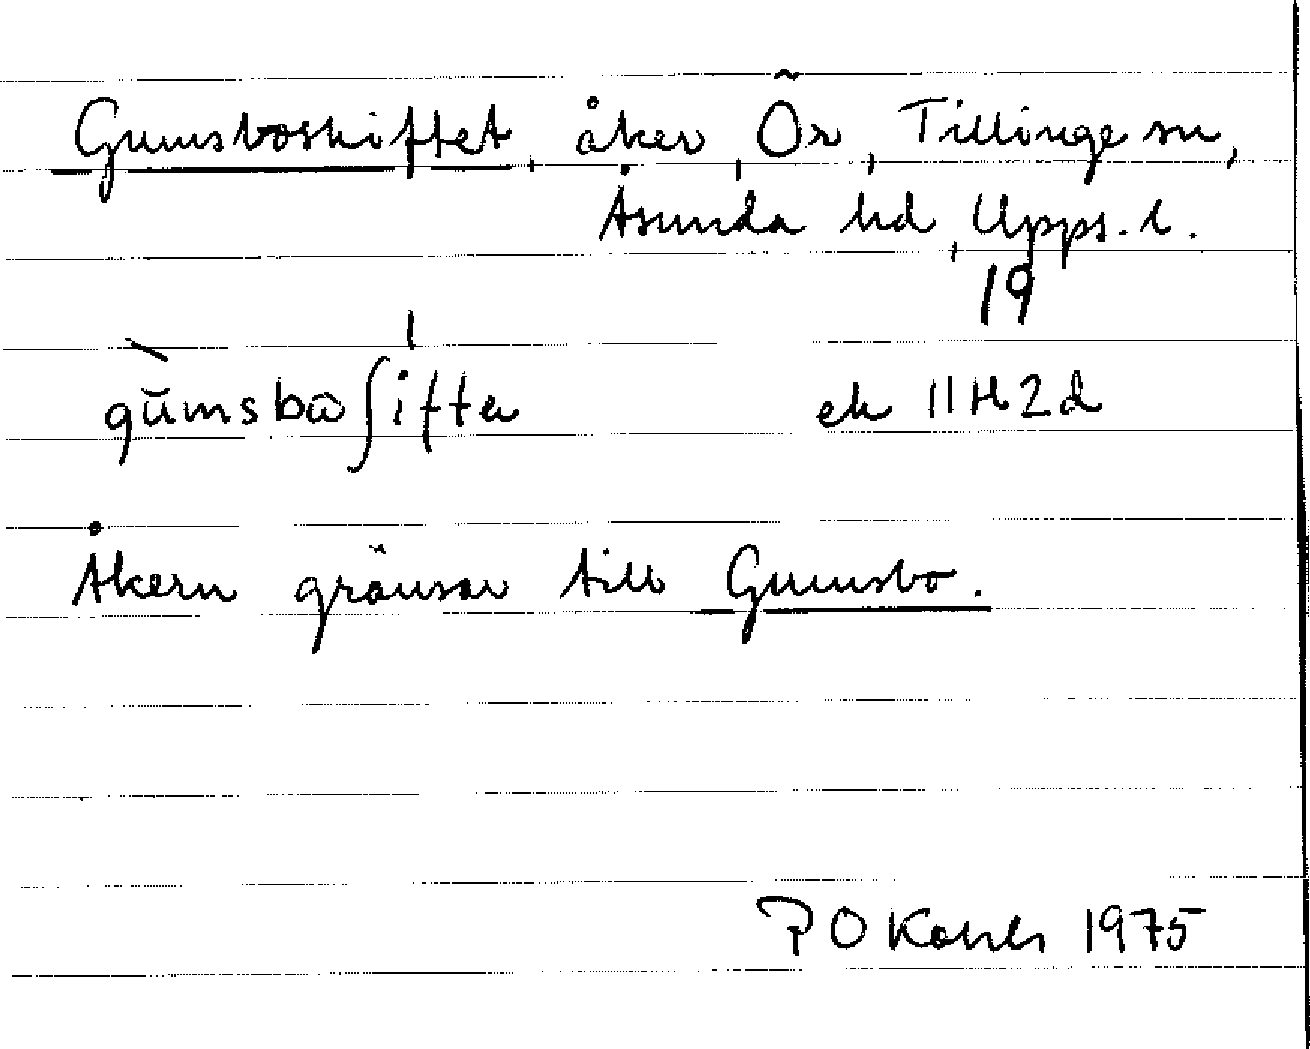 Gumsboskiftet, åker, Ör, Tillinge sn,
Åsunda hd, Upps. l.
19
gŭmsbω ʃifte ek 11H2d
Åkern gränsar till Gumsbo.
P O 1975